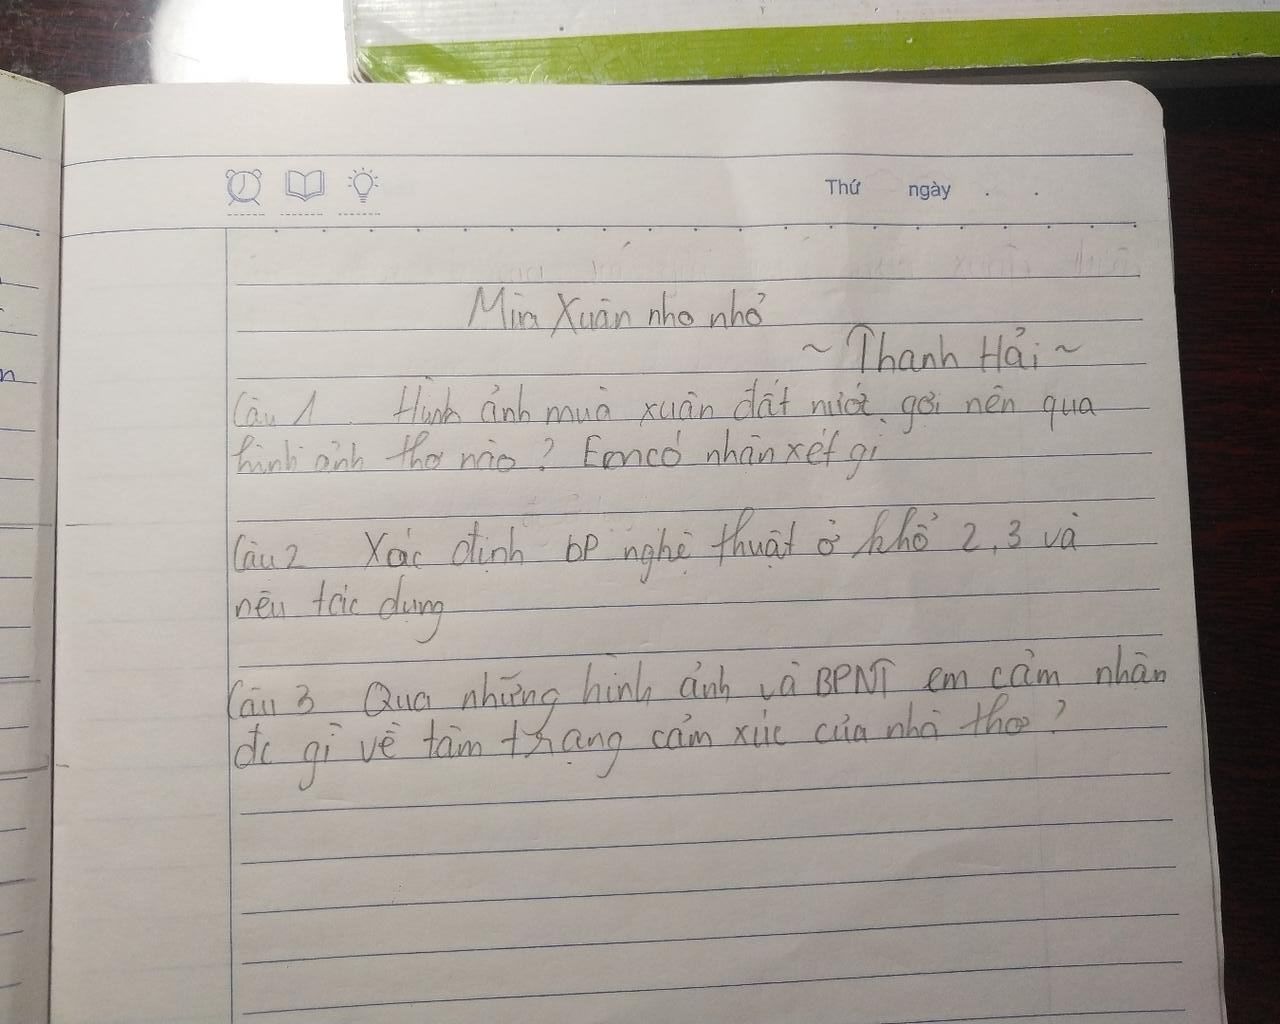 Thứ ngày . .
Mùa Xuân nho nhỏ
~ Thanh Hải ~
Câu 1. Hình ảnh muà xuân đất nước gợi nên qua
hình ảnh thơ nào? Em có nhận xét gì
Câu 2 Xác định bP nghệ thuật ở khổ 2, 3 và
nêu tác dụng
Câu 3 Qua những hình ảnh và BPNT em cảm nhận
đc gì về tâm trạng cảm xúc của nhà thơ?